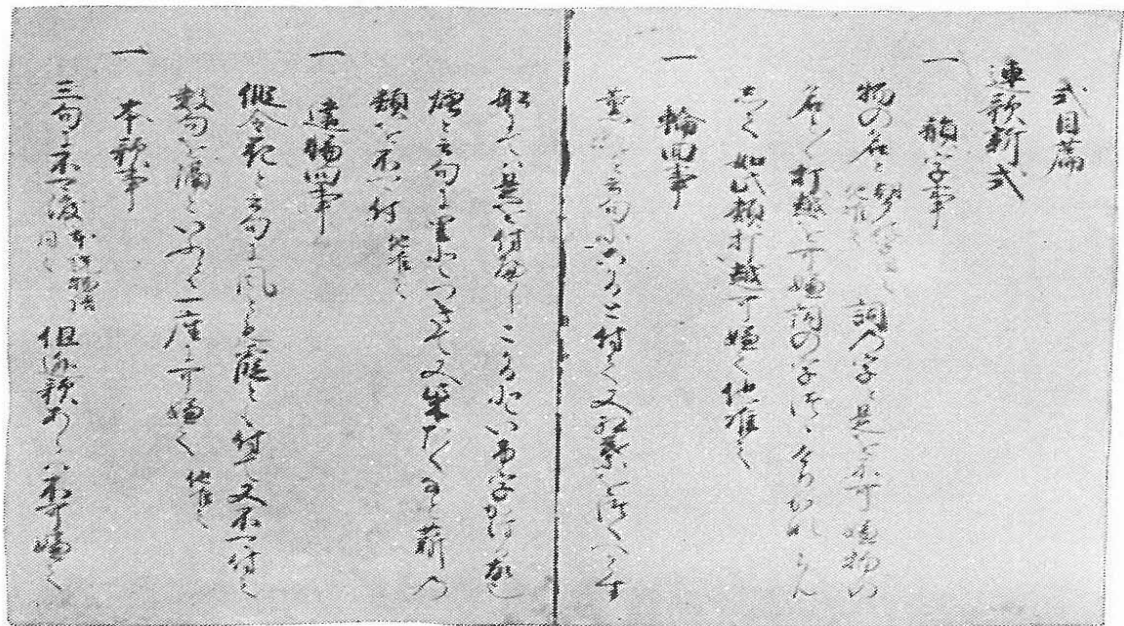 式目篇
連歌新式
一 韻字事
物の名と 詞の字と是を不可嫌物の
名と打越を可嫌詞の字つゝ けり かな らん
して如此類打越可嫌之他准之
一 輪廻事
薫と云句にこかると付て又紅葉を付へからす
船にては是を付へしこかるといふ字かはる故也
煙と云句に里なとつきて又柴たくなと薪の
類を不可付他准之
一 遠輪廻事
縦令花と云句に風とも霞とも付て又不可付之
数句を隔といふとも一座に可嫌之他准之
一 本歌事
三句に不可渡本説物語同之但逃歌あらは不可嫌之